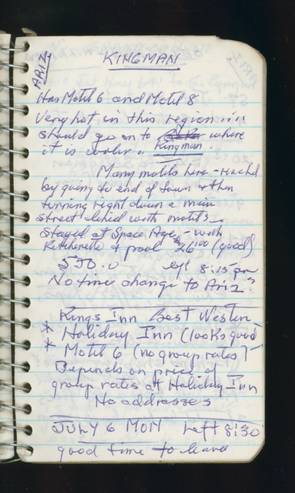 ARIZ
KINGMAN
ARIZ
Has Motel 6 and Motel 8
Very hot in this region...
should go on to where
it is cooler.. Kingman.
Many motels here - reached
by going to end of town & then
turning right down a main
street lined with motels
Stayed at Space Age - with
Kitchenette & pool $26.00 (good)
530.0 left 8:15 pm
No time change to Ariz?
Kings Inn Best Western
* Holiday Inn (looks good)
* Motel 6 (no group rates?)
Depends on price of
group rates at Holiday Inn
No addresses
JULY 6 MON Left 8:30
good time to leave